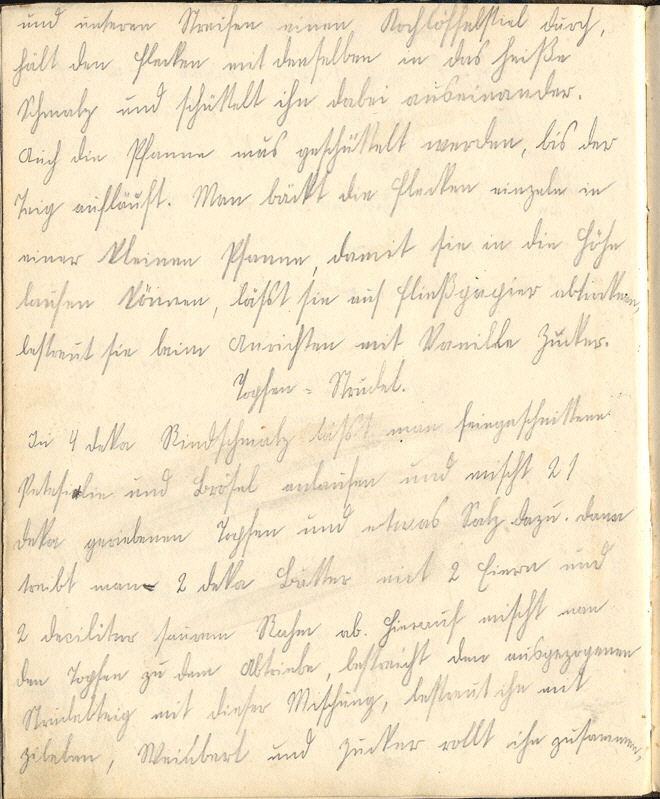 und unseren Streifen einen Kochlöffelstiel durch,
hält den Flecken mit denselben in das heiße
Schmalz und schüttelt ihn dabei auseinander.
Auch die Pfanne mus geschüttelt werden, bis der
Teig aufläuft. Man bäckt die Flecken einzeln in
einer kleinen Pfanne, damit sie in die Höhe
laufen können, läßt sie auf Fließpapier abtrocknen,
bestreut sie beim Anrichten mit Vanille Zucker.
Topfen = Strudel.
In 4 deka Rindschmalz läßt man feingeschnittene
Petersilie und Brösel anlaufen und mischt 21
deka geriebenen Topfen und etwas Salz dazu. Dann
treibt man 2 deka Butter mit 2 Eiern und
2 deciliter sauren Rahm ab. Hierauf mischt man
den Topfen zu dem Abtriebe, bestreicht den ausgezogenen
Strudelteig mit dieser Mischung, bestreut ihn mit
Zibeben, Weinberl und Zucker rollt ihn zusammen,